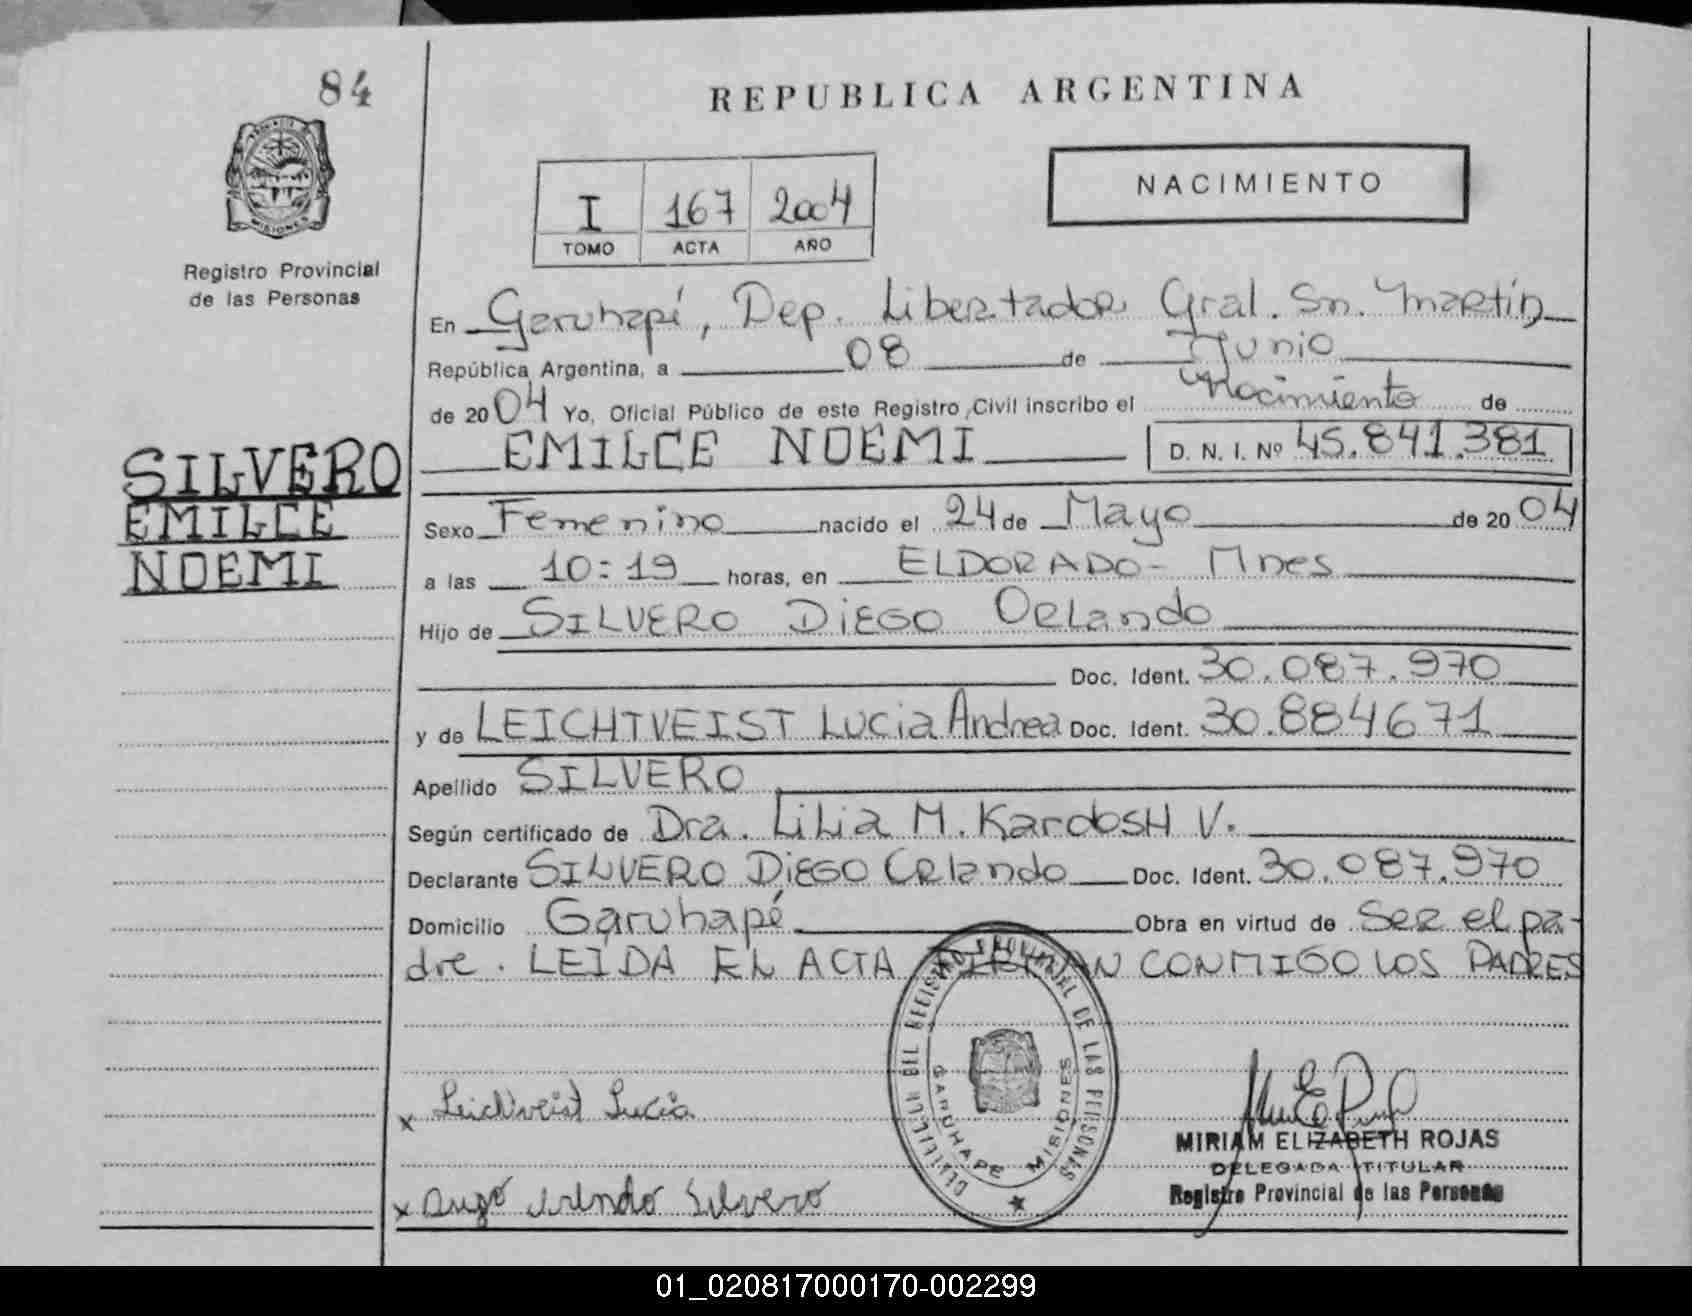 84
REPUBLICA ARGENTINA
PROVINCIA DE MISIONES
Registro Provincial
de las Personas
I 167 2004
TOMO ACTA AÑO
NACIMIENTO
En Garuhapé, Dep. Libertador Gral. Sn. Martín
República Argentina, a 08 de Junio
de 2004 Yo, Oficial Público de este Registro Civil inscribo el Nacimiento de
EMILCE NOEMI D. N. I. Nº 45.841.381
SILVERO
EMILCE
NOEMI
Sexo Femenino nacido el 24 de Mayo de 2004
a las 10:19 horas, en ELDORADO - Mnes
Hijo de SILVERO DIEGO Orlando
Doc. Ident. 30.087.970
y de LEICHTVEIST Lucia Andrea Doc. Ident. 30.884671
Apellido SILVERO
Según certificado de Dra. Lilia M. Kardosh V.
Declarante SILVERO DIEGO Orlando Doc. Ident. 30.087.970
Domicilio Garuhapé Obra en virtud de Ser el pa-
dre. LEIDA EL ACTA FIRMAN CONMIGO LOS PADRES
DEL REGISTRO PROVINCIAL DE LAS PERSONAS
GARUHAPE MISIONES
x Leichtveist Lucia
MIRIAM ELIZABETH ROJAS
DELEGADA TITULAR
Registro Provincial de las Personas
x Silvero
01_020817000170-002299